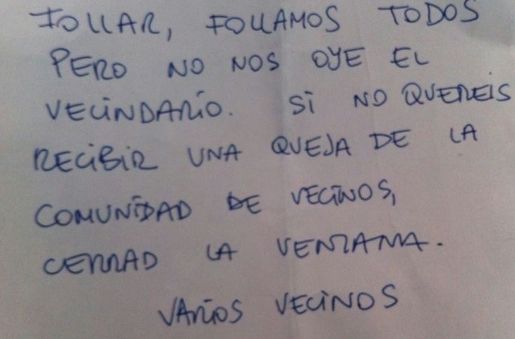 FOLLAR, FOLLAMOS TODOS
PERO NO NOS OYE EL
VECINDARIO. SI NO QUEREIS
RECIBIR UNA QUEJA DE LA
COMUNIDAD DE VECINOS,
CERRAD LA VENTANA.
VARIOS VECINOS